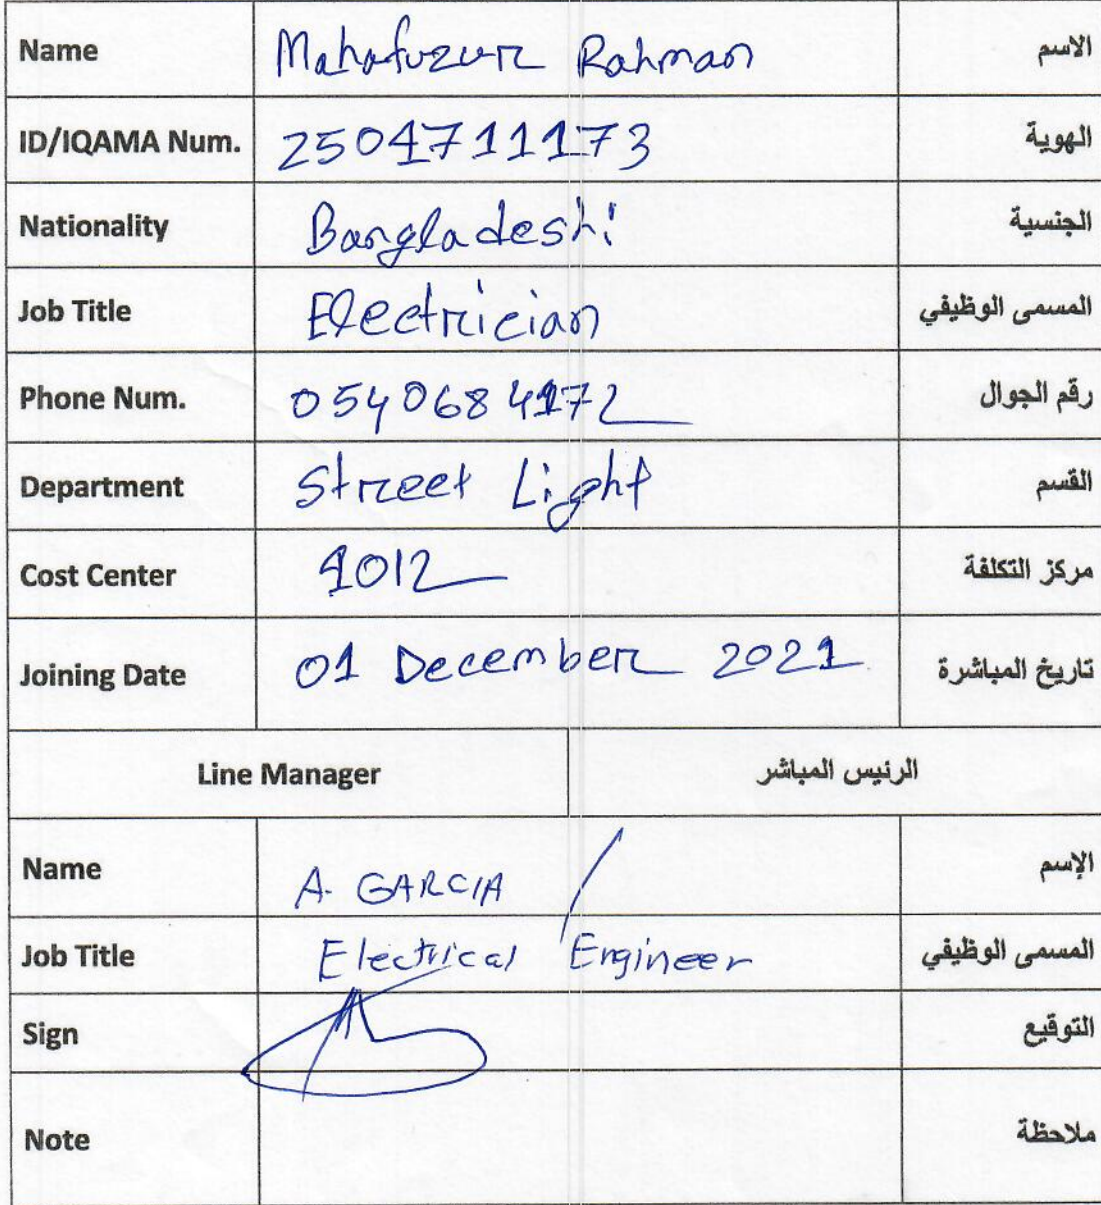 Name Mahafuzur Rahman الاسم
ID/IQAMA Num. 2504711173 الهوية
Nationality Bangladeshi الجنسية
Job Title Electrician المسمى الوظيفي
Phone Num. 0540684172 رقم الجوال
Department Street Light القسم
Cost Center 1012 مركز التكلفة
Joining Date 01 December 2021 تاريخ المباشرة
Line Manager الرئيس المباشر
Name A. GARCIA الإسم
Job Title Electrical Engineer المسمى الوظيفي
Sign التوقيع
Note ملاحظة